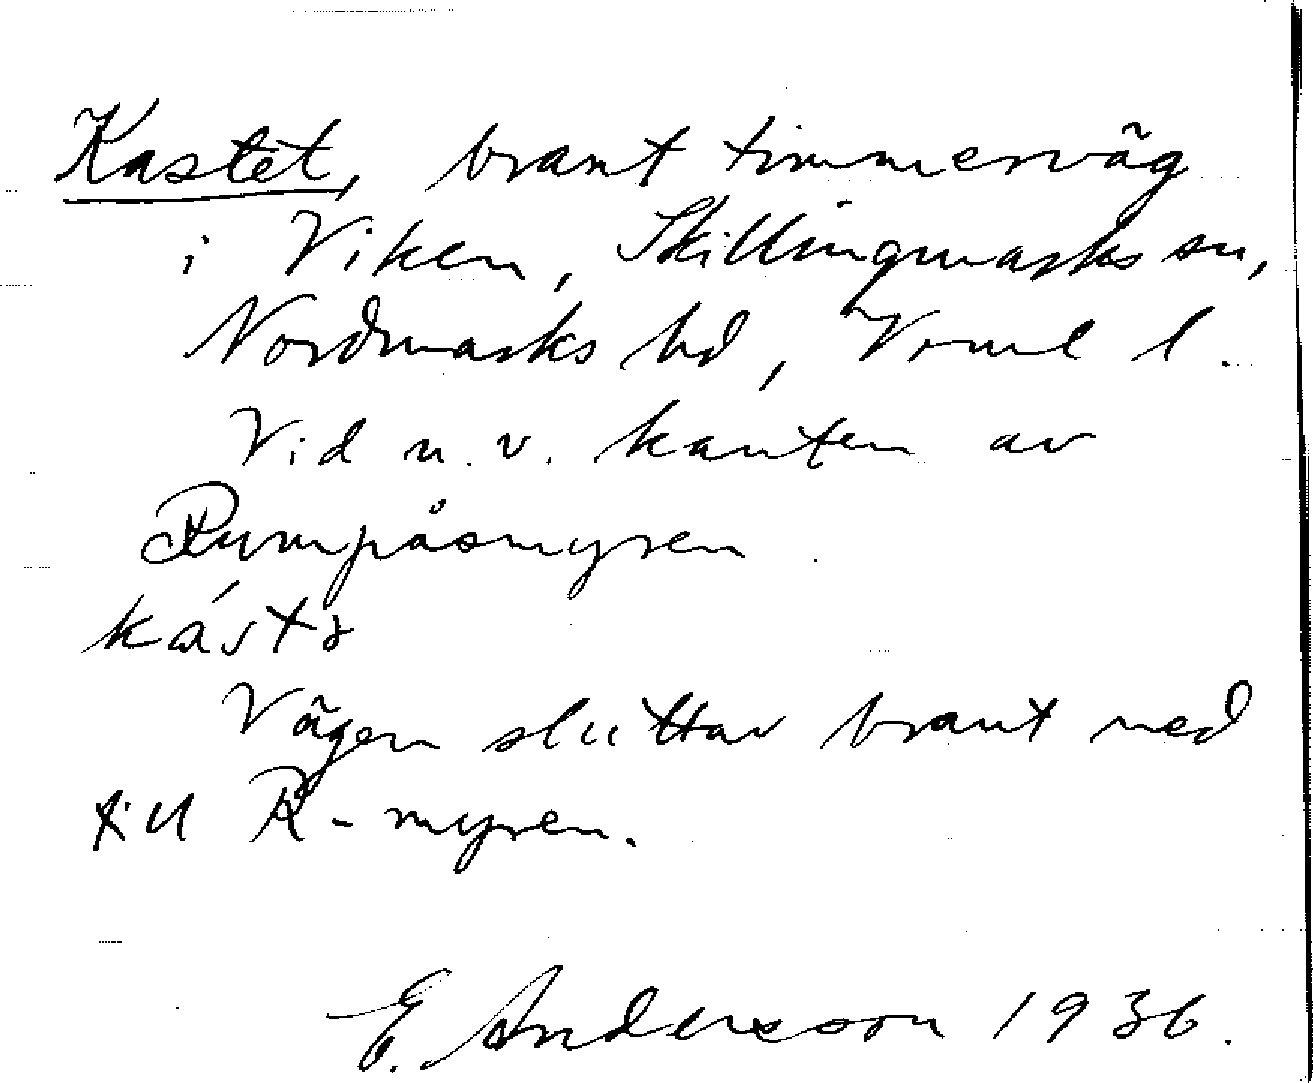 Kastet, brant timmerväg
i Viken, Skillingmarks sn,
Nordmarks hd, Vrml l.
Vid n.v. kanten av
Rumpåsmyren.
Vägen sluttar brant ned
till R-myren.
E. Andersson 1936.